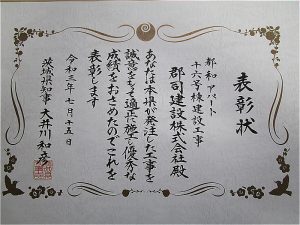 表彰状
都和アパート
十六号棟建設工事
郡司建設株式会社殿
あなたは本県が発注した工事を
誠意をもって適正に施工し優秀な
成績をおさめたのでこれを
表彰します
令和三年七月十五日
茨城県知事 大井川和彦